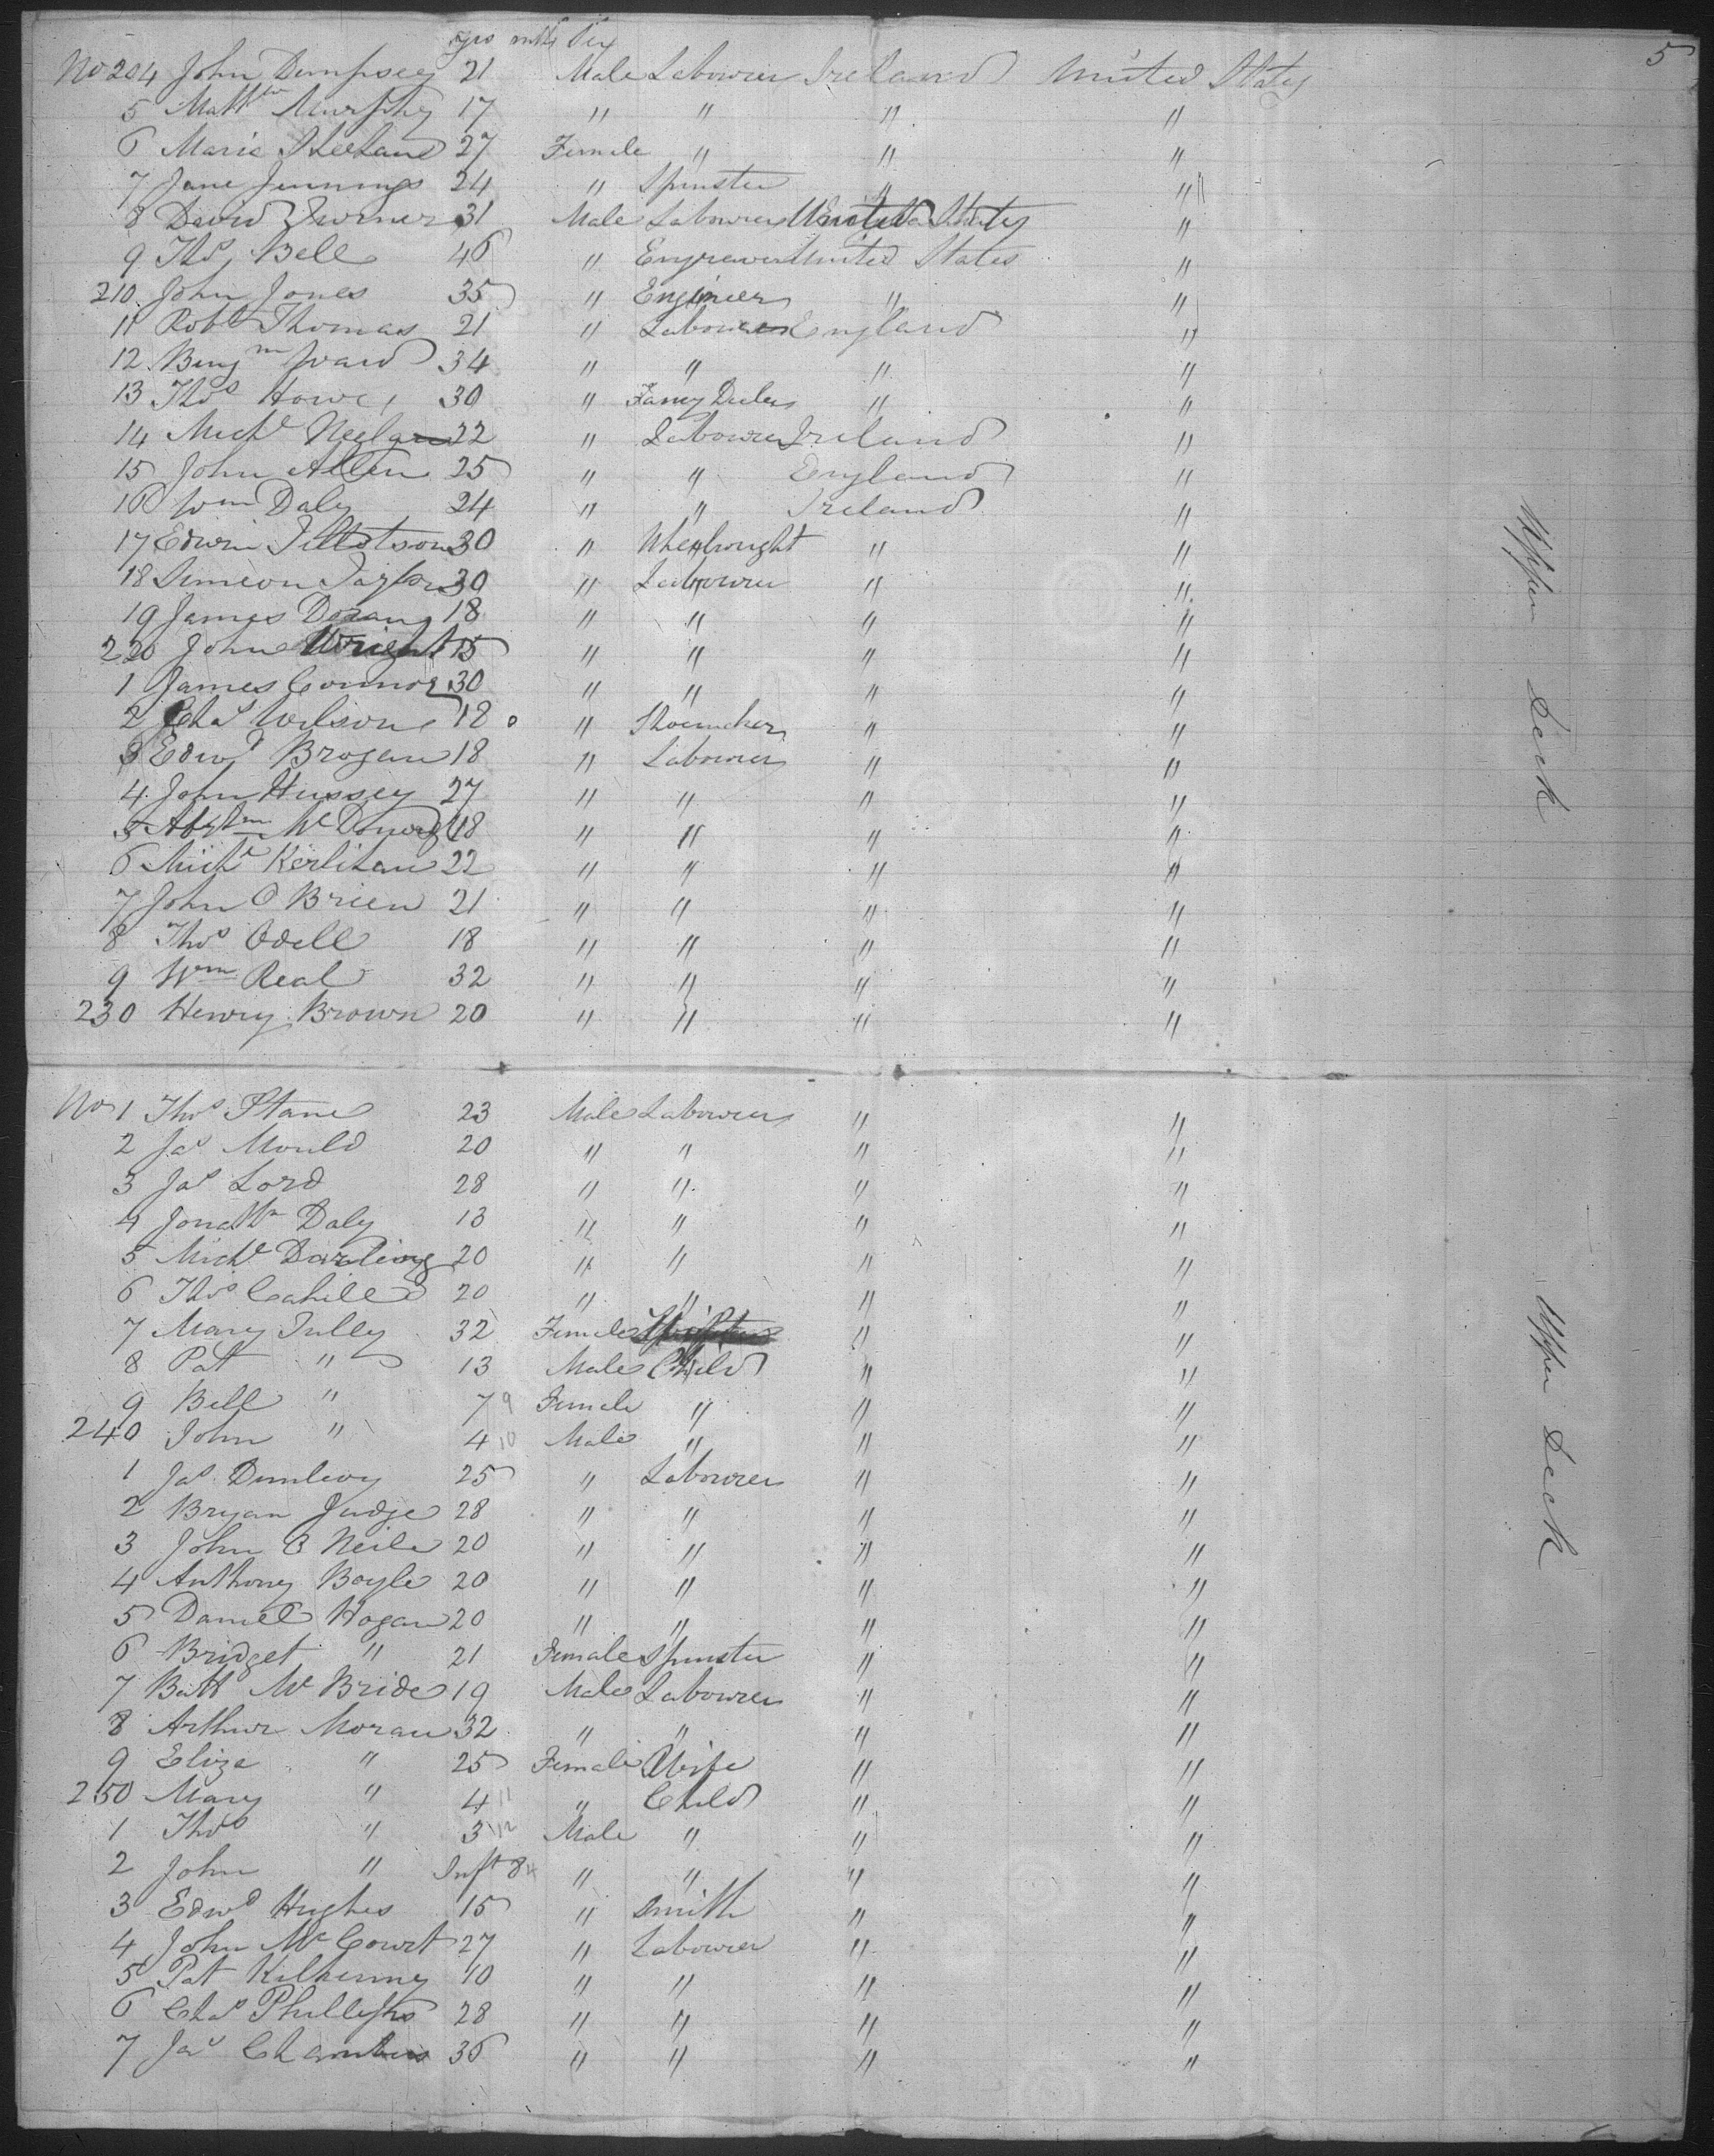 5
yrs mths Sex
No 204 John Dempsey 21 Male Labourer Ireland United States
5 Matthw Murphy 17 " " " "
6 Maria Sheehan 27 Female " " "
7 Jane Jennings 24 " Spinster " "
8 David Turner 31 Male Labourer United States "
9 Thos Bell 46 " Engraver United States "
210 John Jones 35 " Engineer " "
11 Robt Thomas 21 " Labourer England "
12 Benjmn Ward 34 " " " "
13 Thos Howe 30 " Fancy Dealer " "
14 Michl 22 " Labourer Ireland "
15 John Allen 25 " " England "
16 Wm Daly 24 " " Ireland "
17 Edwin Tillotson 30 " Wheelwright " "
18 Simeon Taylor 30 " Labourer " "
19 James Doran 18 " " " "
220 John Wright 15 " " " "
1 James Connor 30 " " " "
2 Chas Wilson 18 " Shoemaker " "
3 Edwd Brogan 18 " Labourer " "
4 John Hussey 27 " " " "
5 Abrhm 18 " " " "
6 Michl 22 " " " "
7 John O Brien 21 " " " "
8 Thos Odell 18 " " " "
9 Wm Real 32 " " " "
230 Henry Brown 20 " " " "
Upper Deck
No 1 Thos 23 Male Labourer " "
2 Jas Mould 20 " " " "
3 Jas Lord 28 " " " "
4 Jonathn Daly 13 " " " "
5 Michl Darling 20 " " " "
6 Thos Cahill 20 " " " "
7 Mary Tully 32 Female " "
8 Pat " 13 Male Child " "
9 Bell " 7 9 Female " " "
240 John " 4 10 Male " " "
1 Jas Dunlevy 25 " Labourer " "
2 Bryan Judge 28 " " " "
3 John O Neile 20 " " " "
4 Anthony Boyle 20 " " " "
5 Daniel Hogan 20 " " " "
6 Bridget " 21 Female Spinster " "
7 Batt Mc Bride 19 Male Labourer " "
8 Arthur Moran 32 " " " "
9 Eliza " 25 Female Wife " "
250 Mary " 4 11 " Child " "
1 Thos " 3 12 Male " " "
2 John " Inft 8 " " " "
3 Edwd Hughes 15 " Smith " "
4 John Mc Court 27 " Labourer " "
5 Pat Kilkenny 10 " " " "
6 Chas Phillips 28 " " " "
7 Jas Chambers 36 " " " "
Upper Deck